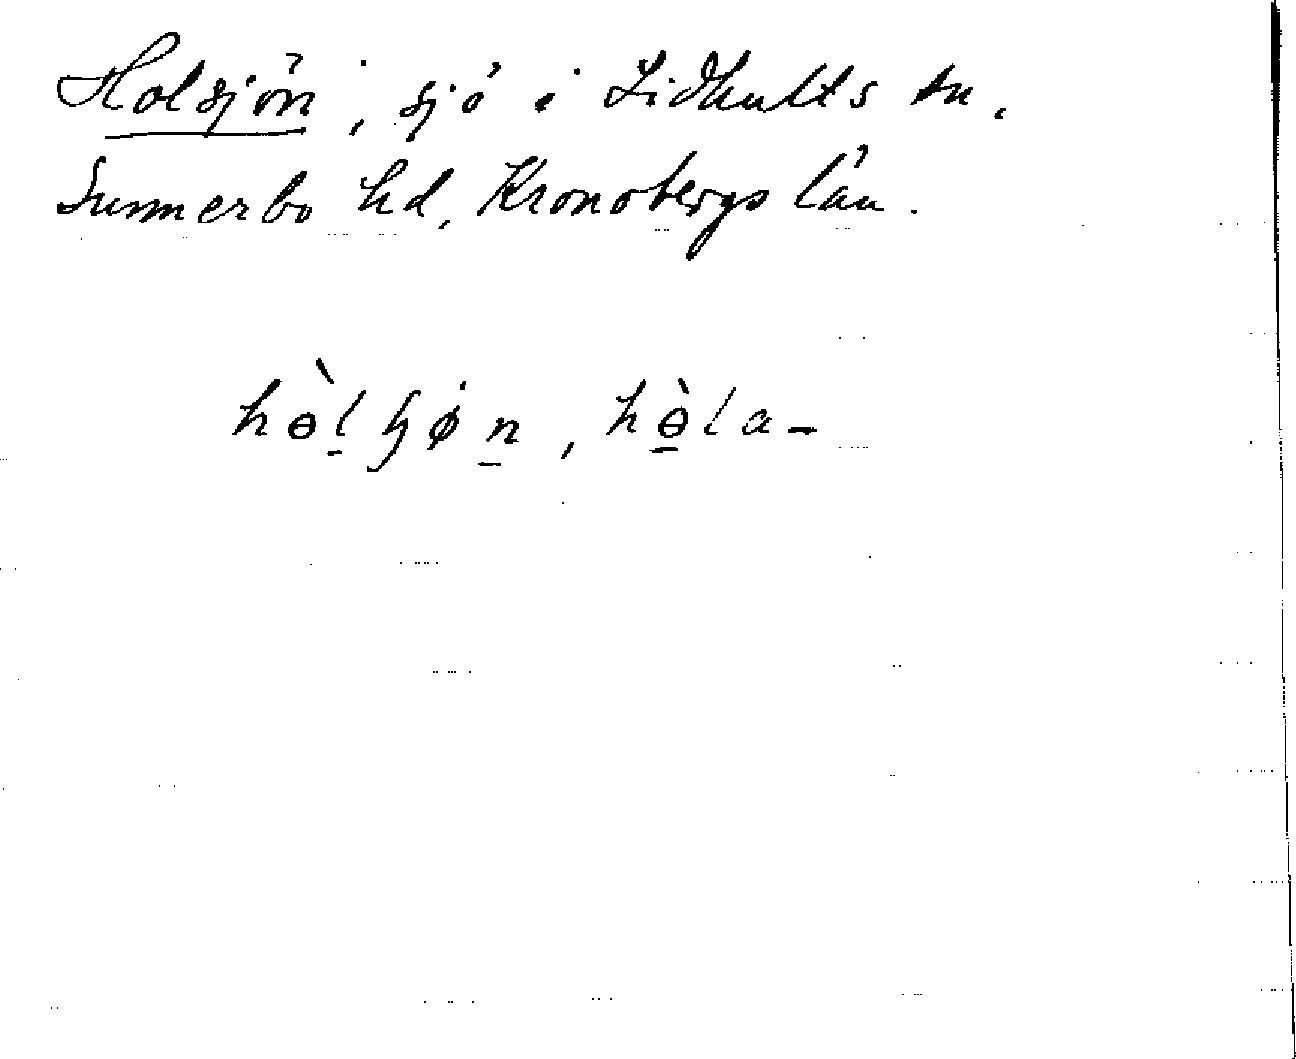 Holsjön, sjö i Lidhults sn,
Sunnerbo hd, Kronobergs län.
hɵ̀l̠ɧøn̠, hɵ̠̀la-